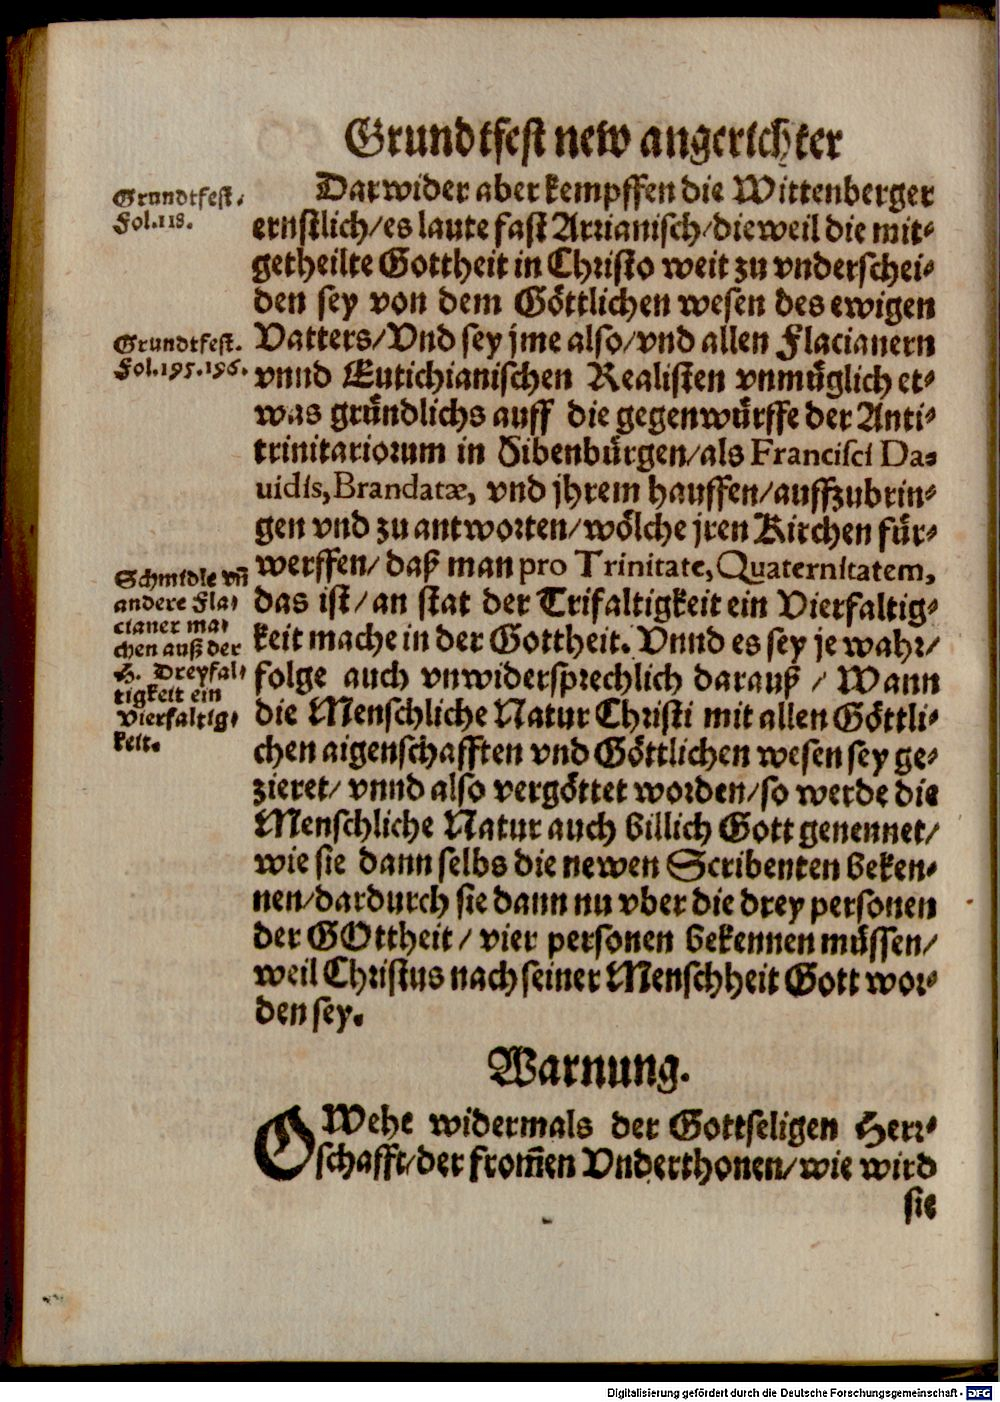 Grundtfest new angerichter
Grundtfest.
Fol.118.
Darwider aber kempffen die Wittenberger
ernstlich/es laute fast Arrianisch/dieweil die mit-
getheilte Gottheit in Christo weit zu vnderschei-
den sey von dem Göttlichen wesen des ewigen
Grundtfest.
Fol.195.196.
Vatters/Vnd sey jme also/vnd allen Flacianern
vnnd Eutichianischen Realisten vnmüglich et-
was gründlichs auff die gegenwürffe der Anti-
trinitariorum in Sibenbürgen/als Francisci Da-
uidis, Brandatæ, vnd jhrem hauffen/auffzubrin-
gen vnd zu antworten/wölche jren Kirchen für-
werffen/ daß man pro Trinitate, Quaternitatem,
Schmidle vñ
andere Fla-
cianer ma-
chen auß der
H. Dreyfal-
tigkeit ein
Vierfaltig-
keit.
das ist/an stat der Trifaltigkeit ein Vierfaltig-
keit mache in der Gottheit. Vnnd es sey je wahr/
folge auch vnwidersprechlich darauß / Wann
die Menschliche Natur Christi mit allen Göttli-
chen aigenschafften vnd Göttlichen wesen sey ge-
zieret/ vnnd also vergöttet worden/so werde die
Menschliche Natur auch billich Gott genennet/
wie sie dann selbs die newen Scribenten beken-
nen/dardurch sie dann nu vber die drey personen
der GOttheit / vier personen bekennen müssen/
weil Christus nach seiner Menschheit Gott wor-
den sey.
Warnung.
O Wehe widermals der Gottseligen Herr-
schafft/der from̃en Vnderthonen/wie wird
sie
Digitalisierung gefördert durch die Deutsche Forschungsgemeinschaft - DFG